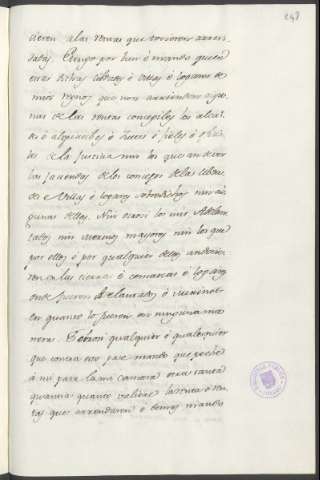 248
dieren a las rentas que tovieren arren-
dadas. E tengo por bien é mando que en
estas dichas cibdades é villas é logares de
mios regnos que non arrienden nin-
nas de las rentas concegiles los alcal-
des é alguaciles é Jueces é fieles é ofi-
les de la Justicia nin los que an de ver
las faciendas de los concejos de las cibda-
des é villas é logares sobredichos nin al-
gunas dellas. Nin otrosi los mis Adelan-
tados nin merinos mayores nin los que
por ellos ó por qualquier dellos andovie-
ren en las tierras é comarcas é logares
onde fueren Adelantados é merinos
en quanto lo fueren en ninguna ma-
nera. E otrosi qualquier ó qualesquier
que contra esto pase mando que peche
á mi para la mi camara otra tanta
quantia quanto valiere la renta ó ren-
tas que arrendaren é demas mando